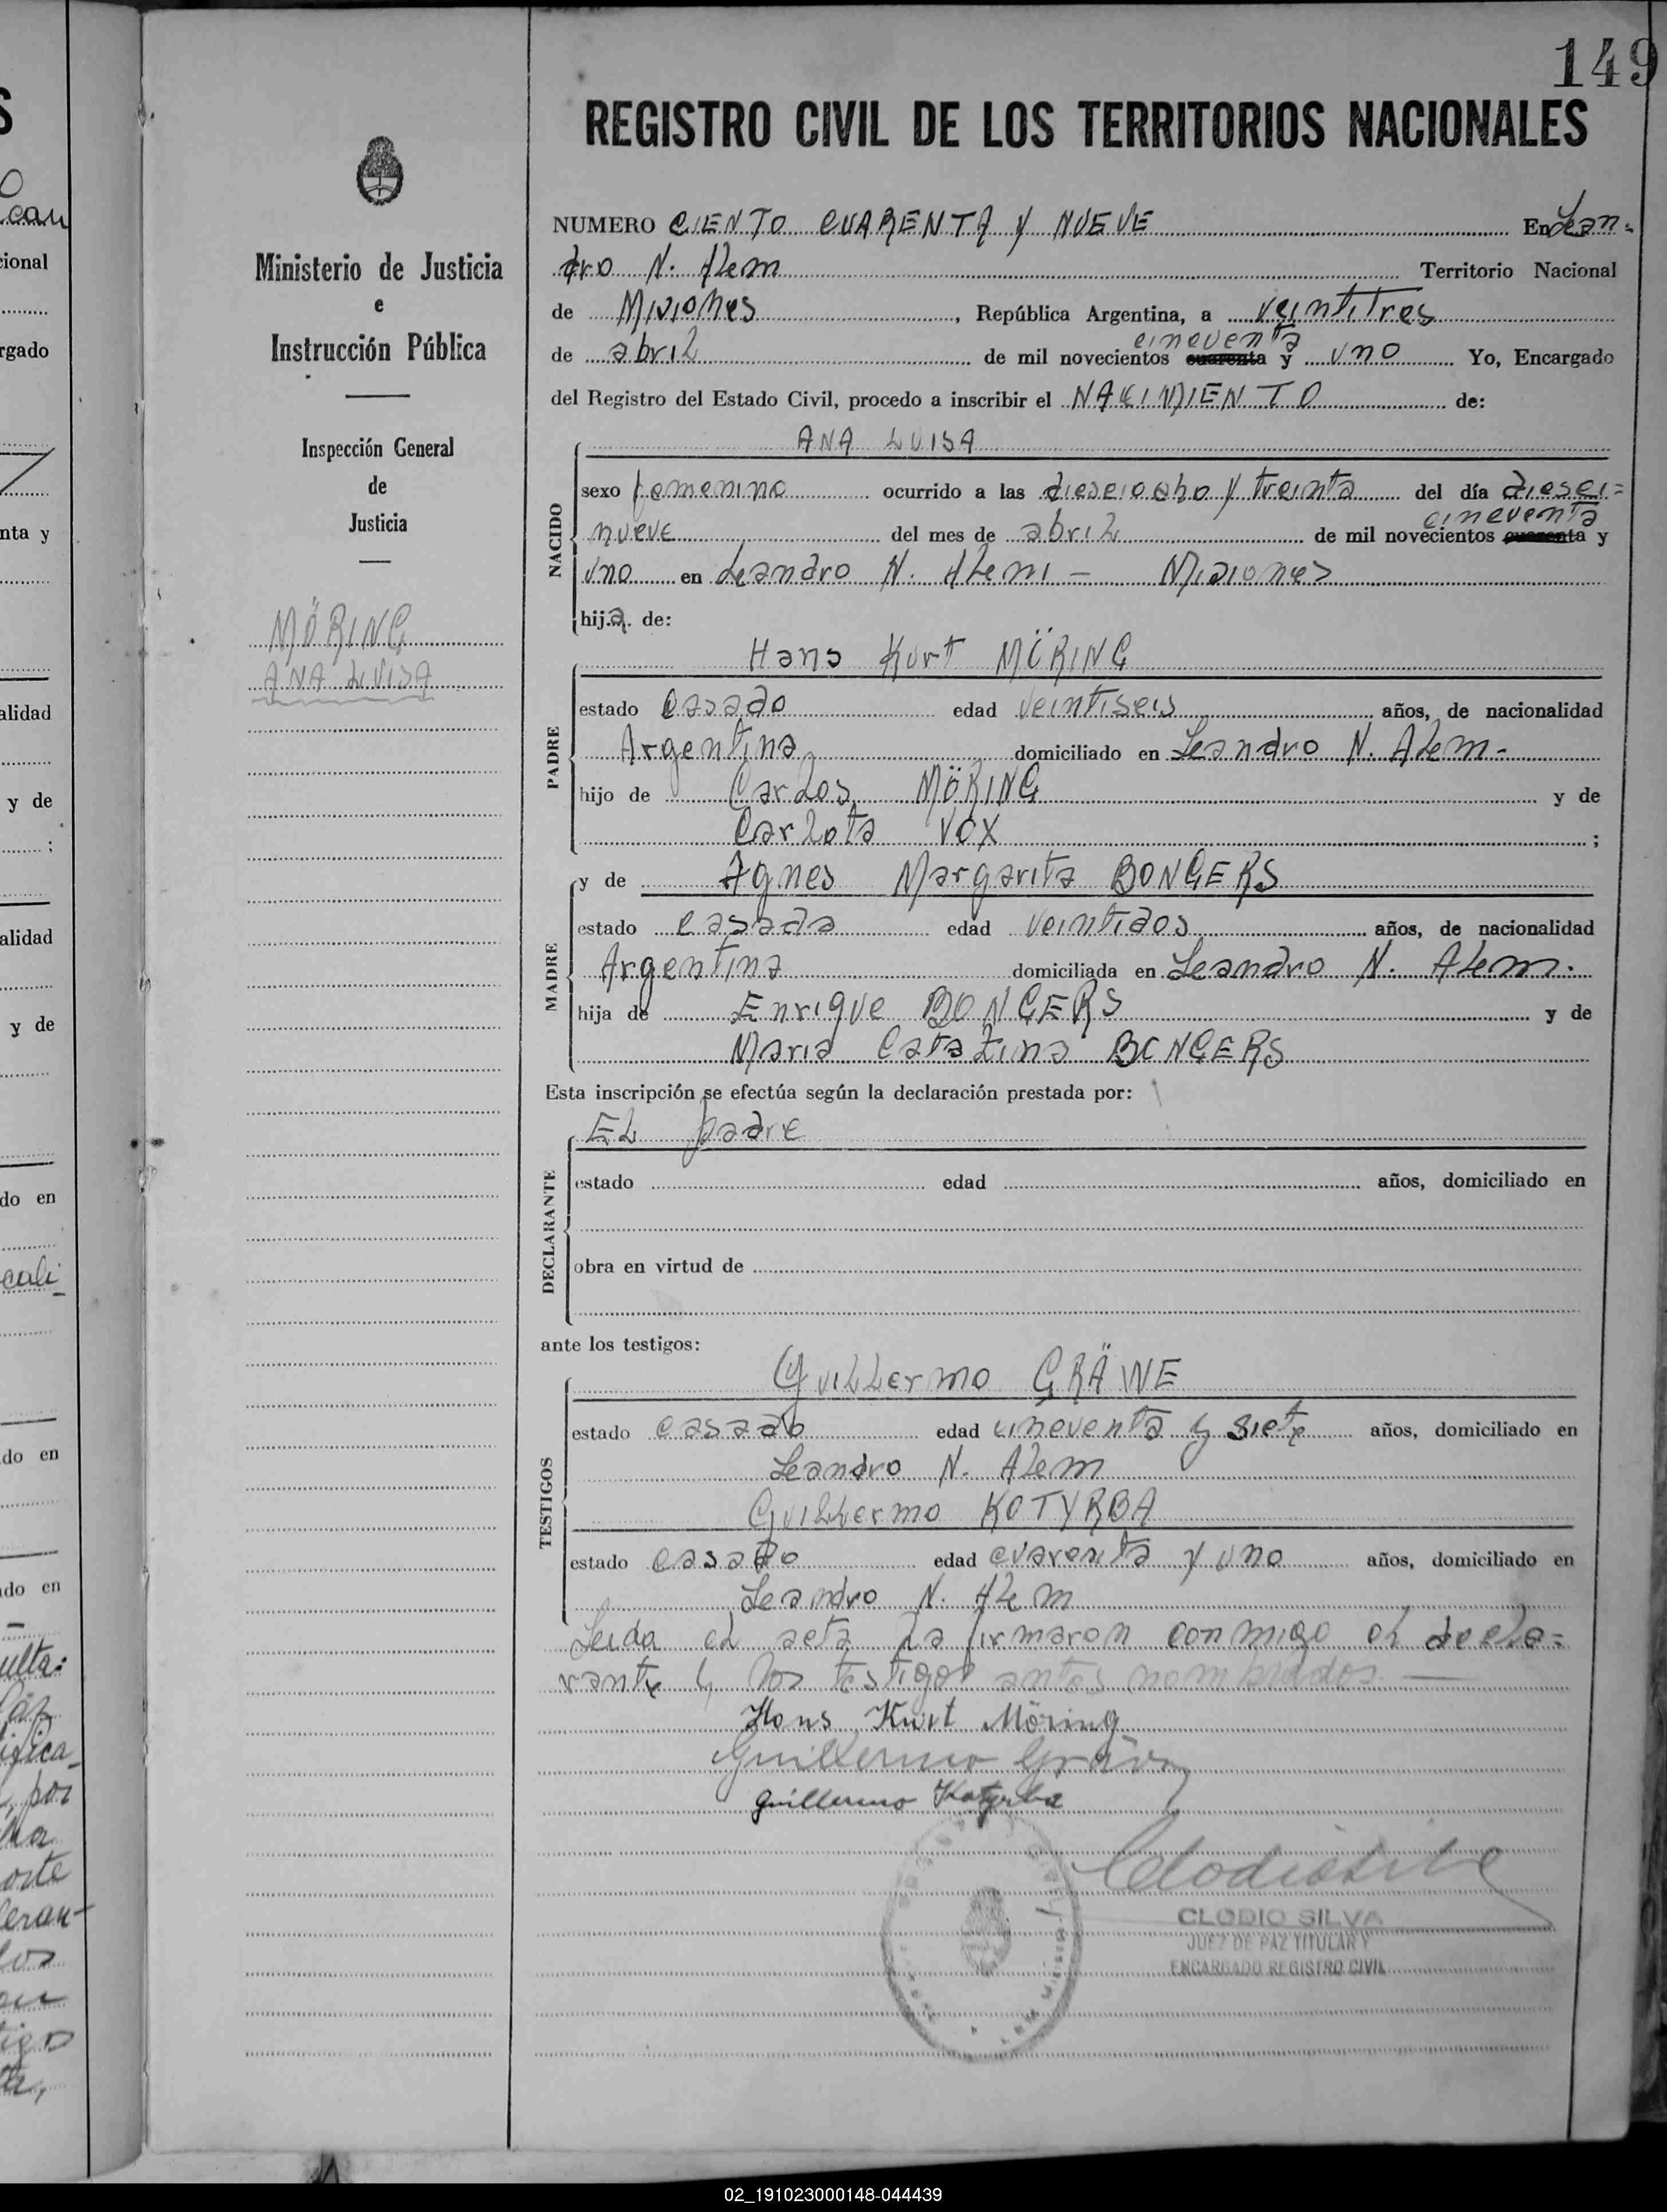 149
REGISTRO CIVIL DE LOS TERRITORIOS NACIONALES
Ministerio de Justicia
e
Instrucción Pública
Inspección General
de
Justicia
MÖRING
ANA LUISA
NUMERO CIENTO CUARENTA Y NUEVE En Lean-
dro N. Alem Territorio Nacional
de Misiones, República Argentina, a veintitres
cincuenta
de abril de mil novecientos cuarenta y uno Yo, Encargado
del Registro del Estado Civil, procedo a inscribir el NACIMIENTO de:
ANA LUISA
NACIDO
sexo femenino ocurrido a las dieseiocho y treinta del día diesei=
cincuenta
nueve del mes de abril de mil novecientos cuarenta y
uno en Leandro N. Alem - Misiones
hija de:
Hans Kurt MÖRING
PADRE
estado casado edad veintiseis años, de nacionalidad
Argentina domiciliado en Leandro N. Alem-
hijo de Carlos MÖRING y de
Carlota VOX ;
y de Agnes Margarita BONGERS
MADRE
estado casada edad veintidos años, de nacionalidad
Argentina domiciliada en Leandro N. Alem.
hija de Enrique BONGERS y de
Maria Catalina BONGERS
Esta inscripción se efectúa según la declaración prestada por:
El padre
DECLARANTE
estado edad años, domiciliado en
obra en virtud de
ante los testigos:
Guillermo GRÄWE
TESTIGOS
estado casado edad cincuenta y siete años, domiciliado en
Leandro N. Alem
Guillermo KOTYRBA
estado casado edad cuarenta y uno años, domiciliado en
Leandro N. Alem
Leida el acta la firmaron conmigo el decla=
rante y los testigos antes nombrados
Hans Kurt Möring
Guillermo Gräwe
Guillermo Kotyrba
Clodio Silva
CLODIO SILVA
JUEZ DE PAZ TITULAR Y
ENCARGADO REGISTRO CIVIL
02_191023000148-044439